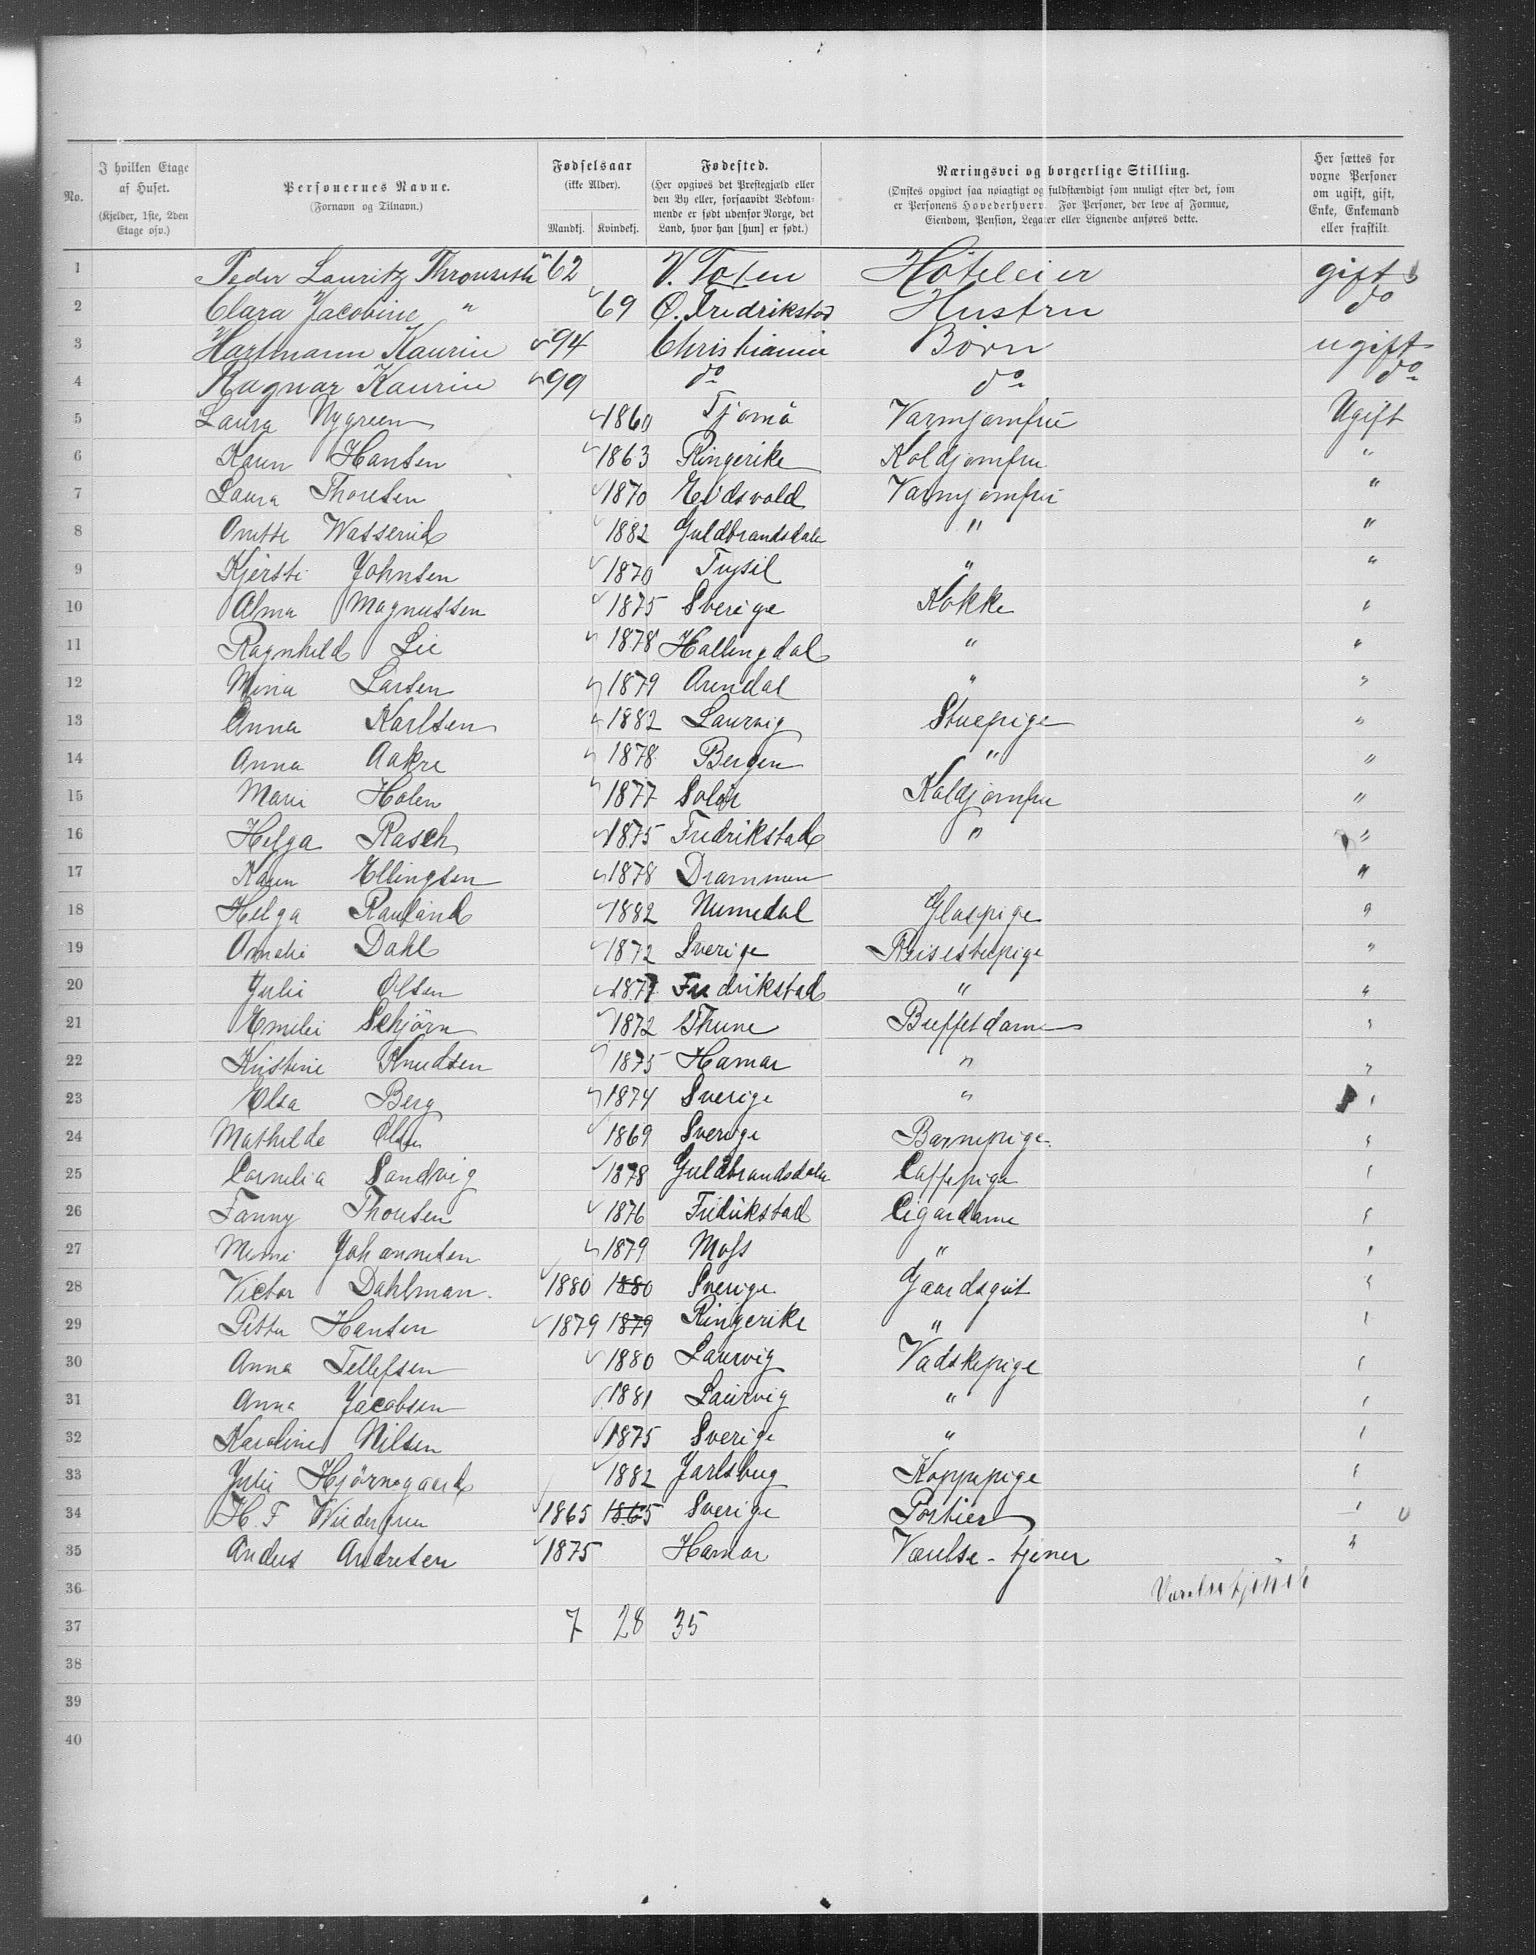 No.
I hvilken Etage af Huset.
(Kjelder, 1ste, 2den Etage osv.)
Personernes Navne.
(Fornavn og Tilnavn.)
Fødselsaar
(ikke Alder).
Mandkj. Kvindekj.
Fødested.
(Her opgives det Prestegjæld eller den By eller, forsaavidt Vedkommende er født udenfor Norge, det Land, hvor han [hun] er født.)
Næringsvei og borgerlige Stilling.
(Ønskes opgivet saa nøiagtigt og fuldstændigt som muligt efter det, som er Personens Hovederhverv. For Personer, der leve af Formue, Eiendom, Pension, Legater eller Lignende anføres dette.
Her sættes for voxne Personer om ugift, gift, Enke, Enkemand eller fraskilt.
1 Peder Lauritz 62 V. Toten Hôteleier gift
2 Clara Jacobine " 69 Ø. Fredrikstad Hustru do
3 Hartmann Kaurin 94 Christiania Børn ugift
4 Ragnar Kaurin 99 do do do
5 Laura Nygreen 1860 Tjømö Varmjomfru Ugift
6 Karen Hansen 1863 Ringerike Koldjomfru "
7 Laura Thoresen 1870 Eidsvold Varmjomfru "
8 1882 Guldbrandsdalen " "
9 Kjersti Johnsen 1870 Trysil " "
10 Alma Magnussen 1875 Sverige Kokke "
11 Ragnhild Lie 1878 Hallingdal " "
12 Mina Larsen 1879 Arendal " "
13 Anna Karlsen 1882 Laurvig Stuepige "
14 Anna Aakre 1878 Bergen " "
15 Marie Holen 1877 Solør Koldjomfru "
16 Helga Rasch 1875 Fredrikstad " "
17 Karen Ellingsen 1878 Drammen "
18 Helga Rauland 1882 Numedal Glaspige "
19 Amalie Dahl 1872 Sverige Reisestuepige "
20 Julie Olsen 1877 Fredrikstad " "
21 Emilie Schjörn 1872 Thune Buffetdame "
22 Kristine Knudsen 1875 Hamar " "
23 Elsa Berg 1874 Sverige " "
24 Mathilde Olsen 1869 Sverige Barnepige "
25 Cornelia Sandvig 1878 Guldbrandsdalen Caffepige "
26 Fanny Thoresen 1876 Fredrikstad Cigardame "
27 Mimi Johannesen 1879 Moss " "
28 Victor Dahlman. 1880 1880 Sverige Gaardsgut "
29 Petter Hansen 1879 1879 Ringerike " "
30 Anna Tellefsen 1880 Laurvig Vadskepige "
31 Anna Jacobsen 1881 Laurvig " "
32 Karoline Nilsen 1875 Sverige " "
33 Julie Hjörnegaard 1882 Jarlsberg Koppepige "
34 H. F 1865 1865 Sverige Portier "
35 Anders Andresen 1875 Hamar Værelse-tjener "
36 Værelsetjener
37 7 28 35
38
39
40